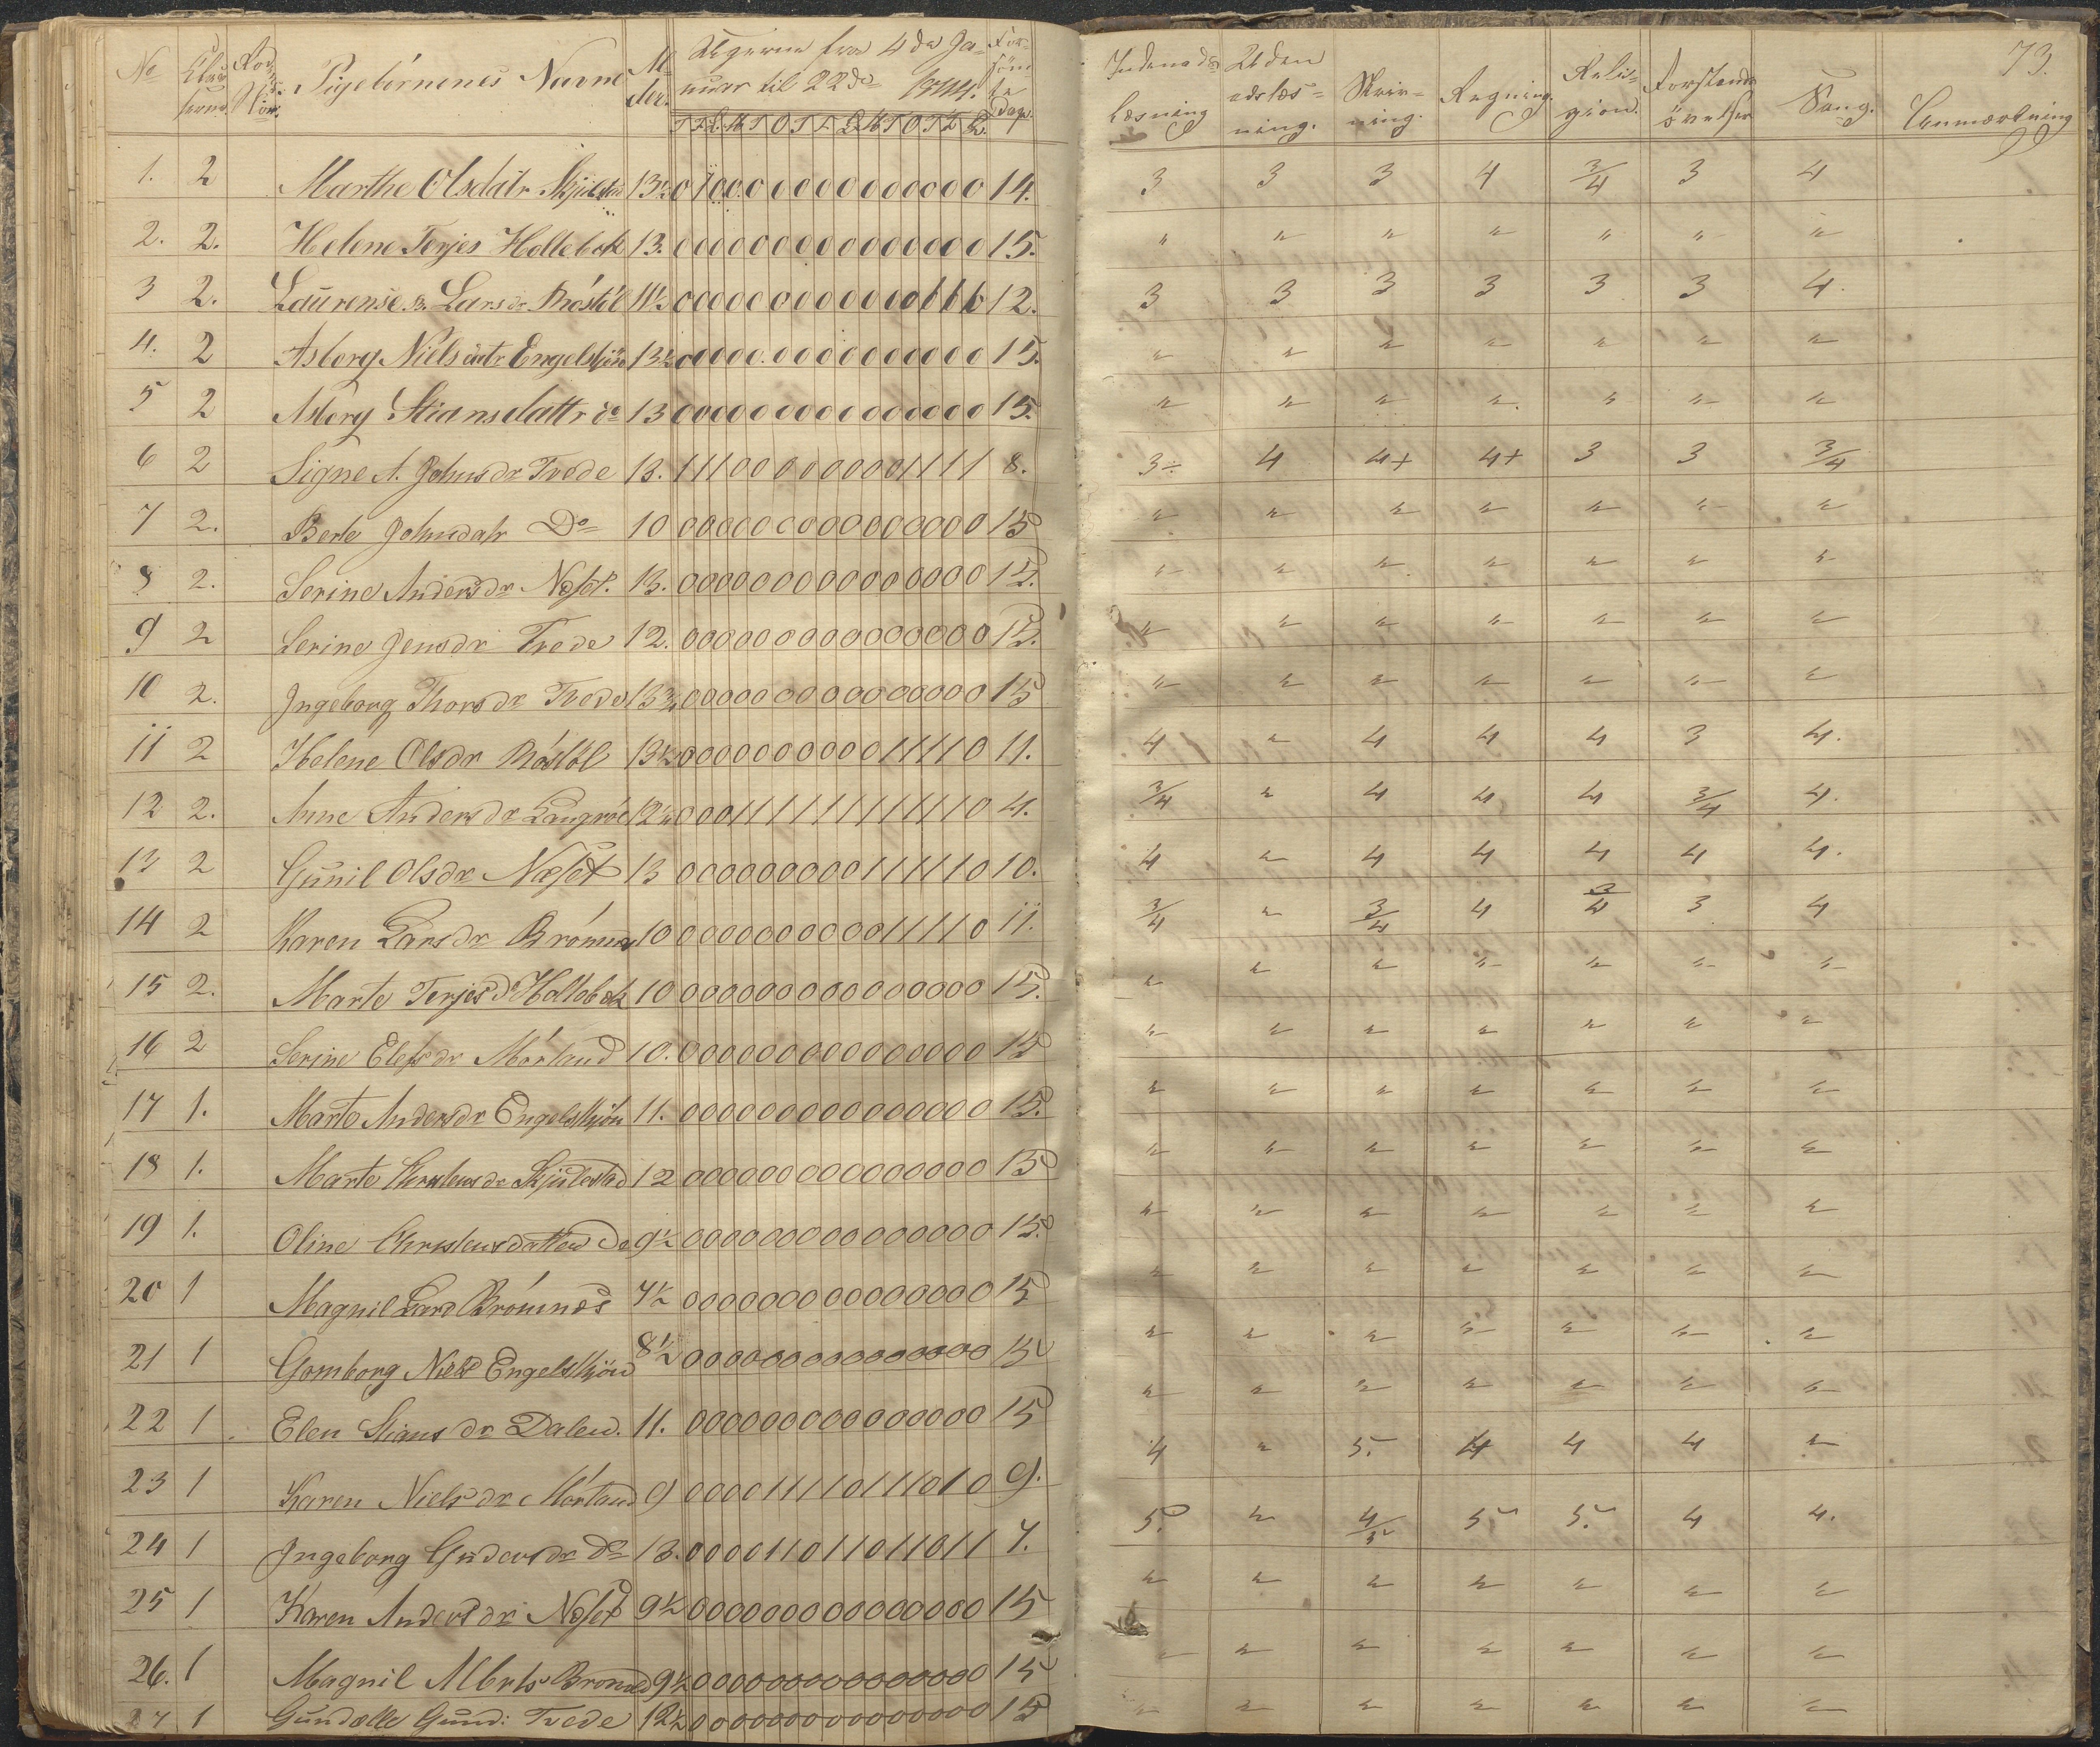 No Pigebörnenes Navne Ugerne fra 4de Ja-
nuar til 22de 1844.
T F L M T O T F L M T O T F L
Indenads
Læsning
Uden
adslæs-
ning.
Skriv-
ning.
Regning.
Reli-
gion.
Forstands
övelser
Sang.
Anmærkning
73.
1. 2 Marthe Olsdatr 13½ 14. 3 3 3 4 3/4 3 4
2. 2. Helene Terjes Holtebek 13. 0 0 0 0 0 0 0 0 0 0 0 0 0 0 0 15. " " " " " " "
3 2. Laurense Larsdr Röstöl 11½ 0 0 0 0 0 0 0 0 0 0 0 0 12. 3 3 3 3 3 3 4.
4. 2 Asborg Nielsdatr Engelskjön 13½ 0 0 0 0 0 0 0 0 0 0 0 0 0 0 0 15. " " " " " " "
5 2 Asborg Stiansdattr do 13 0 0 0 0 0 0 0 0 0 0 0 0 0 0 0 15. " " " " " " "
6 2 Signe A. Johnsdr Tvede 13. 1 1 1 0 0 0 0 0 0 0 0 1 1 1 1 8. 3÷ 4 4+ 4+ 3 3 3/4
7 2. Berte Johnsdatr Do 10 0 0 0 0 0 0 0 0 0 0 0 0 0 0 0 15 " " " " " " "
8 2. Serine Andersdr Næset. 13. 0 0 0 0 0 0 0 0 0 0 0 0 0 0 0 15. " " " " " " "
9 2 Serine Jensdr Tvede 12. 0 0 0 0 0 0 0 0 0 0 0 0 0 0 0 15. " " " " " " "
10 2. Ingeborg Thorsdr Tvede 13¾ 0 0 0 0 0 0 0 0 0 0 0 0 0 0 0 15 " " " " " " "
11 2 Helene Olsdr Röstöl 13½ 0 0 0 0 0 0 0 0 0 0 1 1 1 1 0 11. 4 " 4 4 4 3 4.
12 2. Anne Andersdr 12½ 0 0 0 1 1 1 1 1 1 1 1 1 1 1 0 4. 3/4 " 4 4 4 3/4 4.
13 2 Gunil Olsdr Næset 13 0 0 0 0 0 0 0 0 0 1 1 1 1 1 0 10. 4 " 4 4 4 4 4.
14 2 Karen Larsdr Brömnes 10 0 0 0 0 0 0 0 0 0 0 1 1 1 1 0 11. 3/4 " 3/4 4 3/4 3 4
15 2. Marte Terjesdr Holtebek 10 0 0 0 0 0 0 0 0 0 0 0 0 0 0 0 15. " " " " " " "
16 2 Serine Elefsdr Mörland 10. 0 0 0 0 0 0 0 0 0 0 0 0 0 0 0 15 " " " " " " "
17 1. Marte Andersdr Engelskjön 11. 0 0 0 0 0 0 0 0 0 0 0 0 0 0 0 15. " " " " " " "
18 1. Marte Skjulestad 12 0 0 0 0 0 0 0 0 0 0 0 0 0 0 0 15 " " " " " " "
19 1. Oline Do 9½ 0 0 0 0 0 0 0 0 0 0 0 0 0 0 0 15. " " " " " " "
20 1 Magnil Lars Brömnes 7½ 0 0 0 0 0 0 0 0 0 0 0 0 0 0 0 15 " " " " " " "
21 1 Gomborg Niels Engelskjön 8½ 0 0 0 0 0 0 0 0 0 0 0 0 0 0 0 15 " " " " " " "
22 1 Elen Stiansdr Dalen. 11. 0 0 0 0 0 0 0 0 0 0 0 0 0 0 0 15 " " " " " " "
23 1 Karen Nielsdr Mörland 9 0 0 0 0 1 1 1 1 0 1 1 1 0 1 0 9. 4 " 5. 4 4 4 "
24 1 Ingeborg Gundersdr do 13. 0 0 0 0 1 1 0 1 1 0 1 1 0 1 1 7. 5. " 4/5 5 5. 4 4.
25 1 Karen Andersdr Næset 9½ 0 0 0 0 0 0 0 0 0 0 0 0 0 0 0 15 " " " " " " "
26. 1 Magnil Alberts 9½ 0 0 0 0 0 0 0 0 0 0 0 0 0 0 0 15 " " " " " " "
27 1 Gundelle Gund: Tvede 12½ 0 0 0 0 0 0 0 0 0 0 0 0 0 0 0 15 " " " " " " "